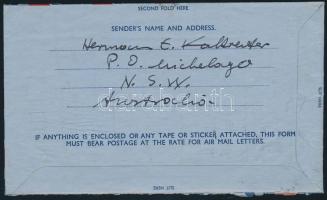 SECOND FOLD HERE
SENDER'S NAME AND ADDRESS.
Herman E.
P.O. Michelago
N.S.W.
Australia
IF ANYTHING IS ENCLOSED OR ANY TAPE OR STICKER ATTACHED, THIS FORM
MUST BEAR POSTAGE AT THE RATE FOR AIR MAIL LETTERS.